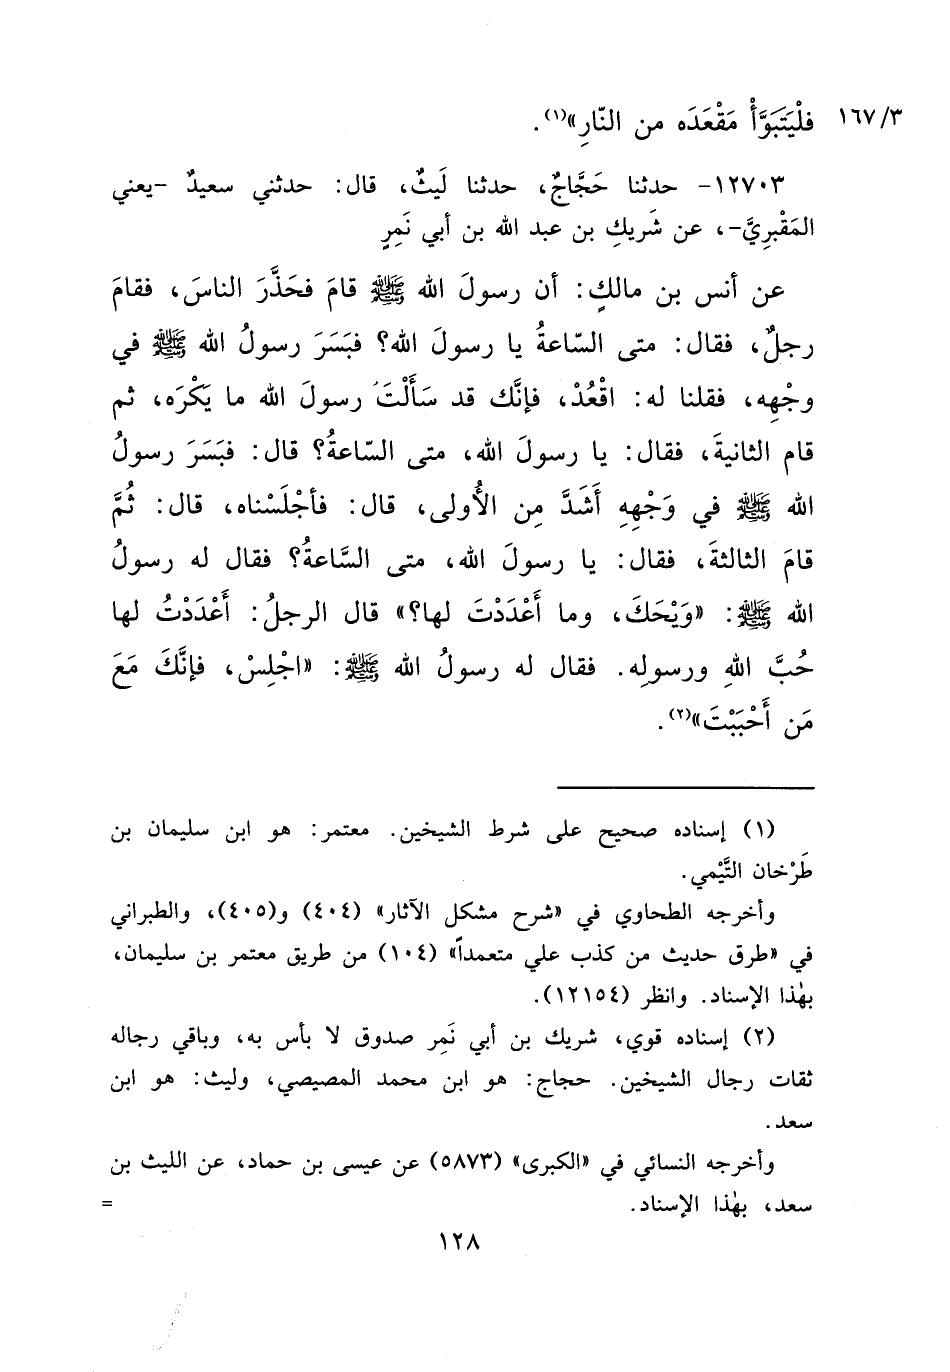 ١٦٧/٣ فلْيَتَبَوَّأْ مَقْعَدَه من النّارِ»(١).
١٢٧٠٣- حدثنا حَجَّاجٌ، حدثنا لَيثٌ، قال: حدثني سعيدٌ -يعني
المَقْبِرِيَّ-، عن شَريكِ بن عبد الله بن أبي نَمِرٍ
عن أنس بن مالكٍ: أن رسولَ الله ﷺ قامَ فحَذَّرَ الناسَ، فقامَ
رجلٌ، فقال: متى السّاعةُ يا رسولَ الله؟ فبَسَرَ رسولُ الله ﷺ في
وجْهِه، فقلنا له: اقْعُدْ، فإنَّك قد سَأَلْتَ رسولَ الله ما يَكْرَه، ثم
قام الثانيةَ، فقال: يا رسولَ الله، متى السّاعةُ؟ قال: فبَسَرَ رسولُ
الله ﷺ في وَجْهِهِ أَشَدَّ مِن الأُولى، قال: فأجْلَسْناه، قال: ثُمَّ
قامَ الثالثةَ، فقال: يا رسولَ الله، متى السَّاعةُ؟ فقال له رسولُ
الله ﷺ: «وَيْحَكَ، وما أَعْدَدْتَ لها؟» قال الرجلُ: أَعْدَدْتُ لها
حُبَّ اللهِ ورسولِه. فقال له رسولُ الله ﷺ: «اجْلِسْ، فإنَّكَ مَعَ
مَن أَحْبَبْتَ»(٢).
(١) إسناده صحيح على شرط الشيخين. معتمر: هو ابن سليمان بن
طَرْخان التَّيْمي.
وأخرجه الطحاوي في «شرح مشكل الآثار» (٤٠٤) و(٤٠٥)، والطبراني
في «طرق حديث من كذب علي متعمداً» (١٠٤) من طريق معتمر بن سليمان،
بهٰذا الإسناد. وانظر (١٢١٥٤).
(٢) إسناده قوي، شريك بن أبي نَمِر صدوق لا بأس به، وباقي رجاله
ثقات رجال الشيخين. حجاج: هو ابن محمد المصيصي، وليث: هو ابن
سعد.
وأخرجه النسائي في «الكبرى» (٥٨٧٣) عن عيسى بن حماد، عن الليث بن
سعد، بهٰذا الإسناد. =
١٢٨